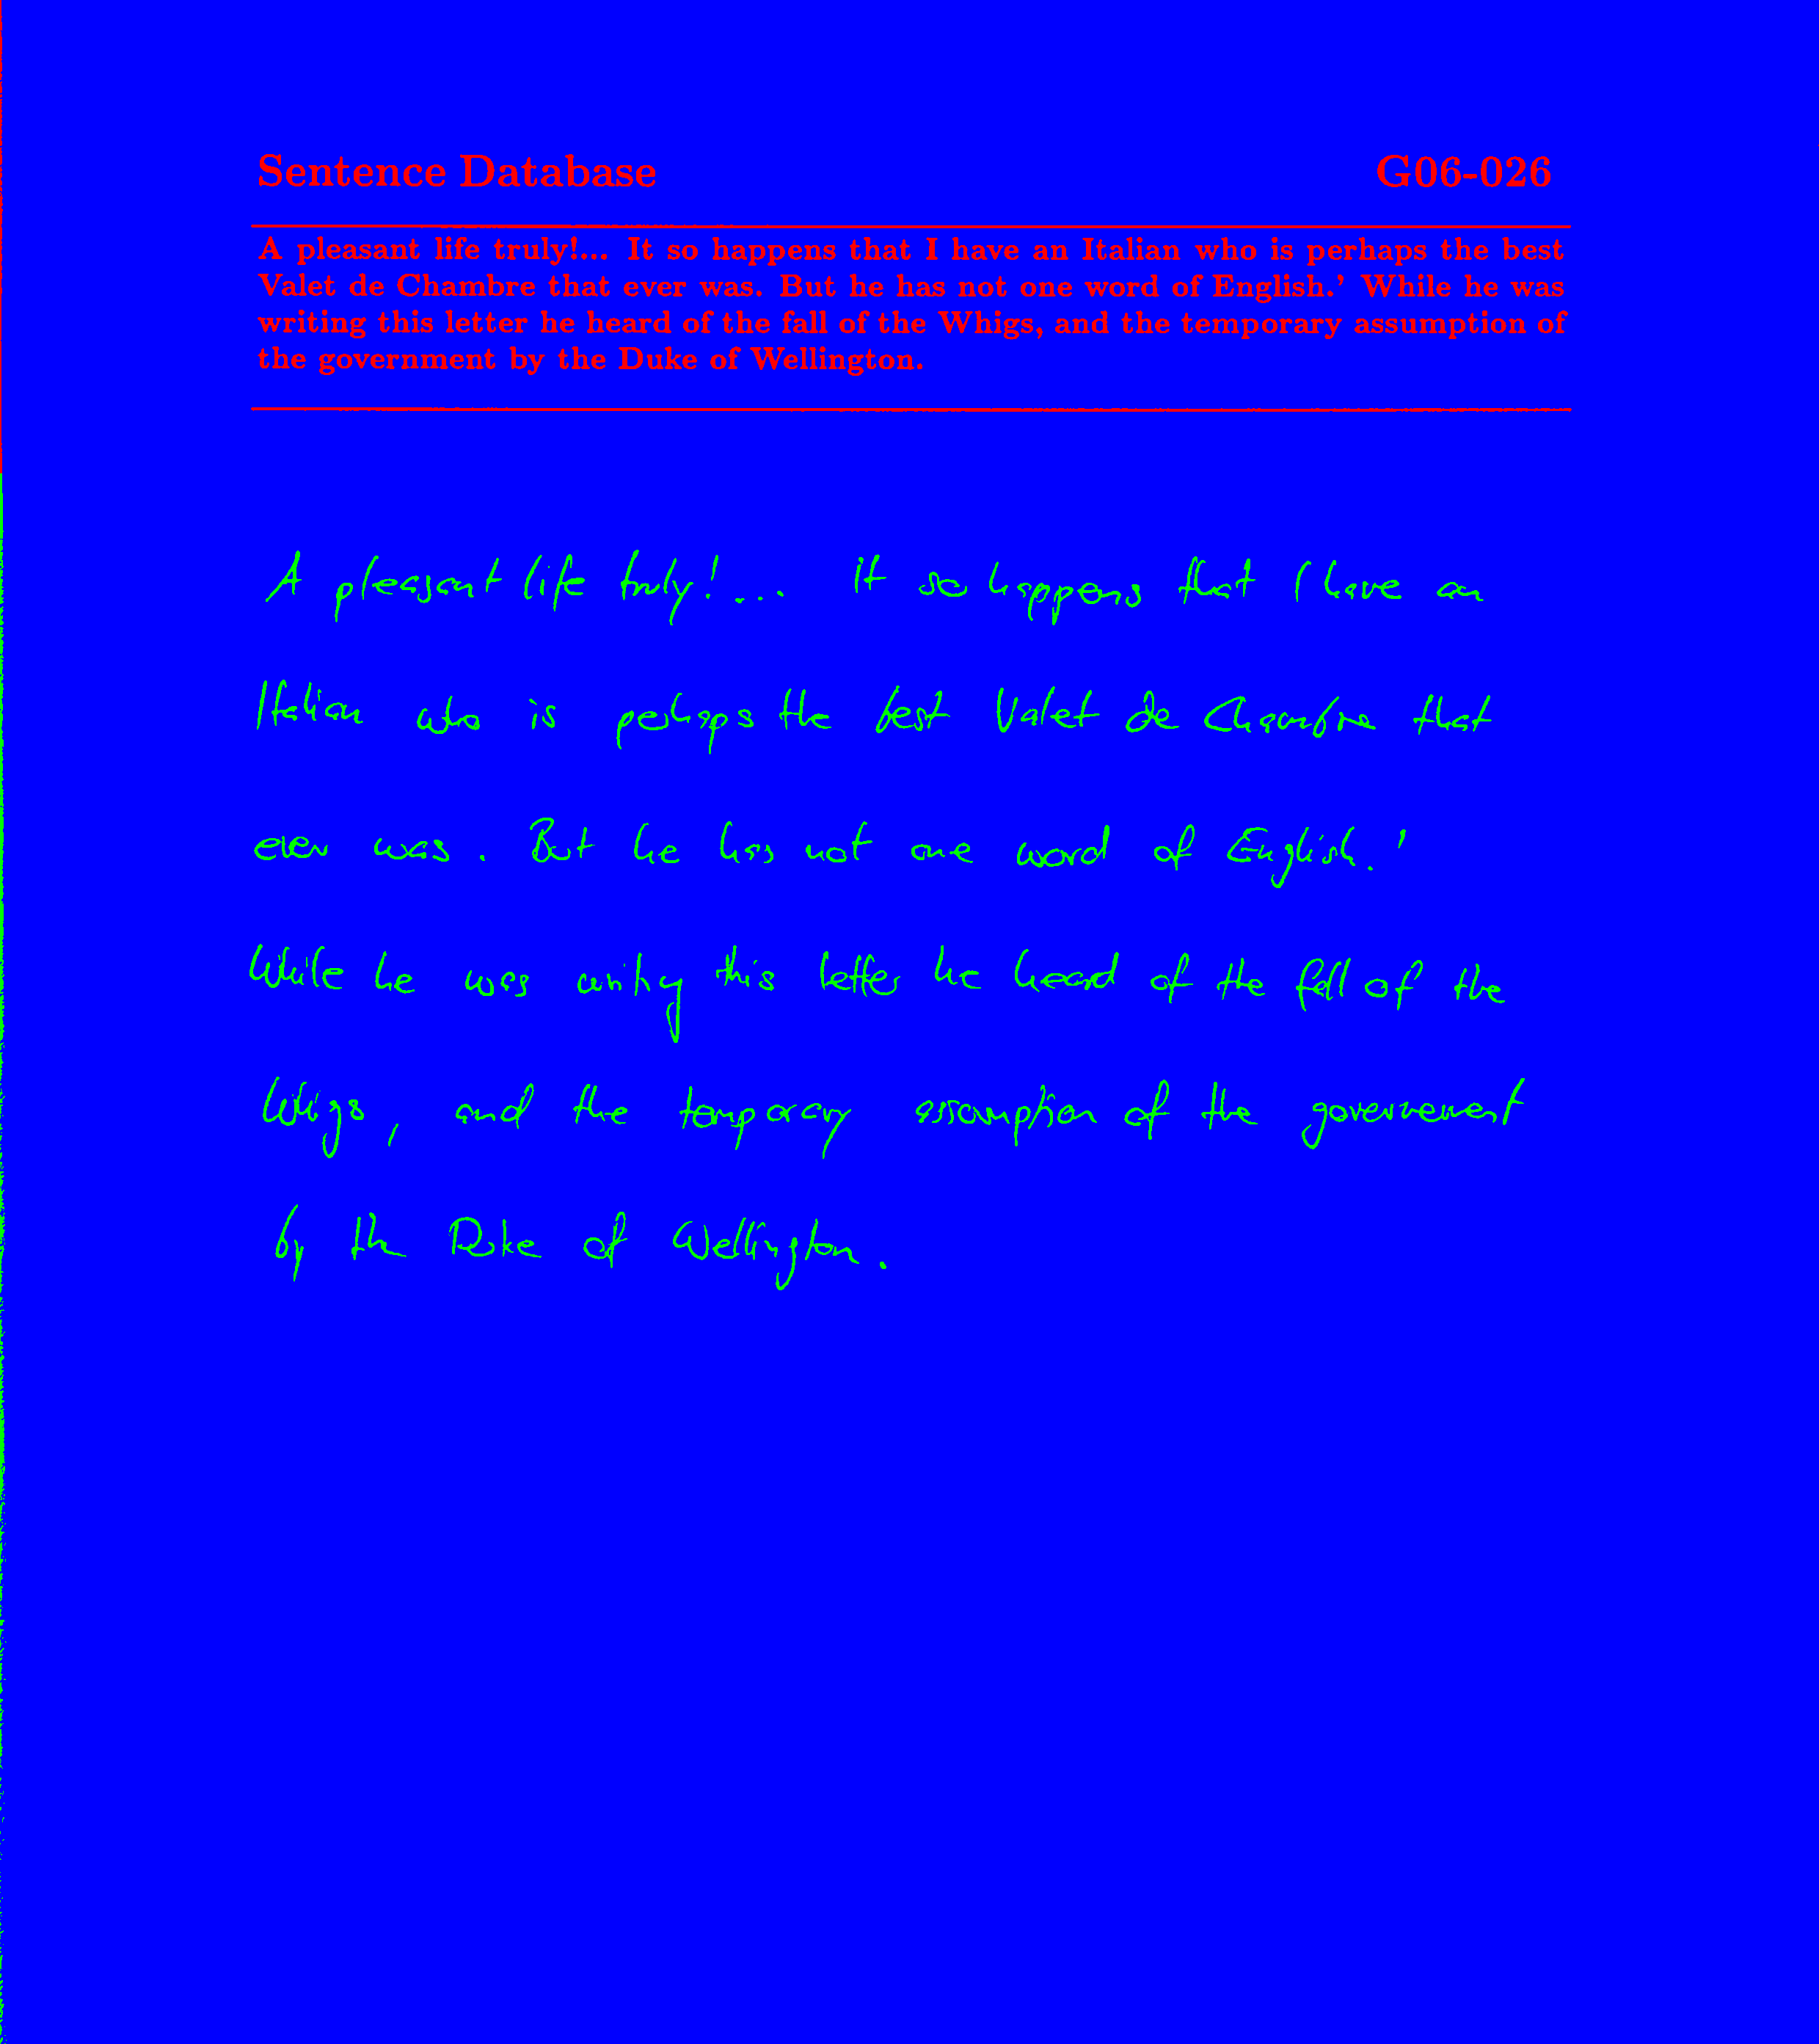 Sentence Database G06-026
A pleasant life truly!... It so happens that I have an Italian who is perhaps the best
Valet de Chambre that ever was. But he has not one word of English.' While he was
writing this letter he heard of the fall of the Whigs, and the temporary assumption of
the government by the Duke of Wellington.
A pleasant life truly!... It so happens that I have an
Italian who is perhaps the best Valet de Chambre that
ever was. But he has not one word of English.'
While he was writing this letter he heard of the fall of the
Whigs, and the temporary assumption of the government
by the Duke of Wellington.